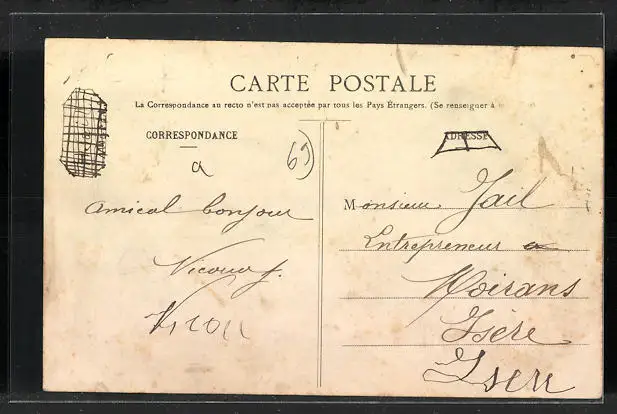 CARTE POSTALE
La Correspondance au recto n'est pas acceptée par tous les Pays Étrangers. (Se renseigner à
CORRESPONDANCE
a
69)
amical bonjour
ADRESSE
Monsieur Jail
Entrepreneur a
Moirans
Isère
Isere